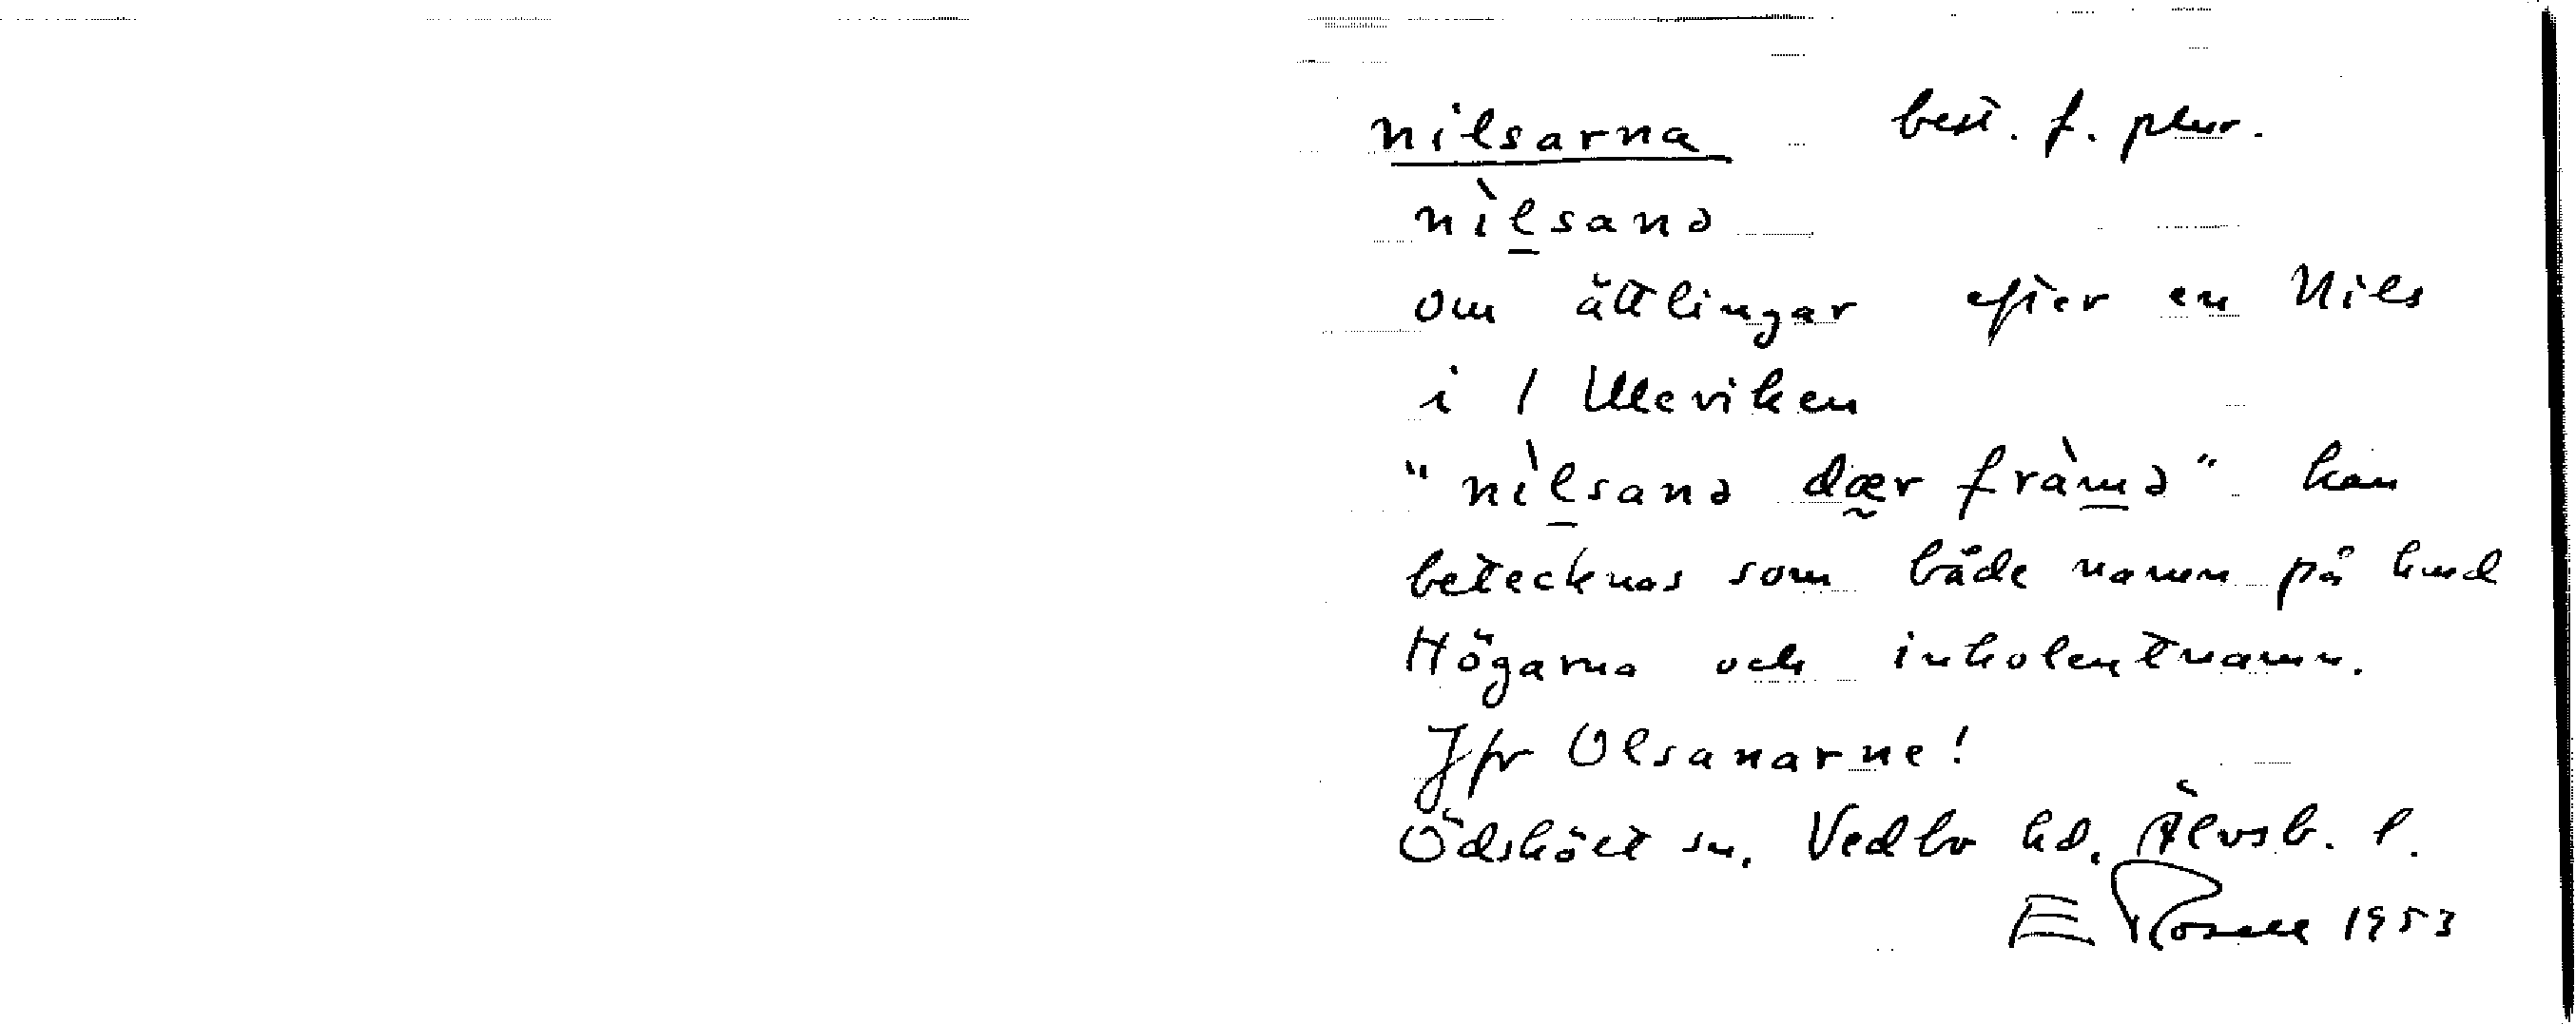 nilsarna best. f. plur.
nìl̲sanə
om ättlingar efter en Nils
i 1 Ulleviken
"nìl̲sanə dæ̰r fràm̲ə" kan
betecknas som både namn på hmd
Högarna och inkolentnamn.
Jfr Olsanarne!
Ödskölt sn. Vedbo hd. Älvsb. l.
E Rosell 1953